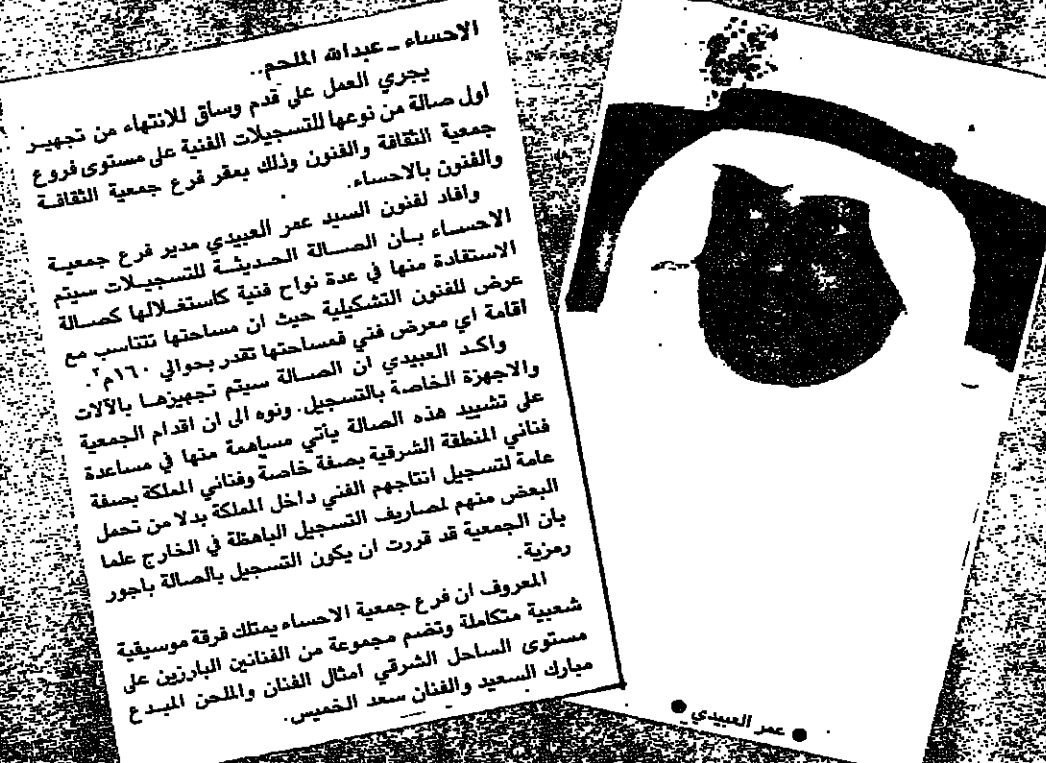 الاحساء ــ عبدالله الملحم..
يجري العمل على قدم وساق للانتهاء من تجهيـز
اول صالة من نوعها للتسجيلات الفنية على مستوى فروع
جمعية الثقافة والفنون وذلك بمقر فرع جمعية الثقافـة
والفنون بالاحساء.
وافاد لفنون السيد عمر العبيدي مدير فرع جمعيـة
الاحسـاء بـان الصـــالة الحـديثـة للتسجيـلات سيتم
الاستفادة منها في عدة نواح فنية كاستغـلالها كصــالة
عرض للفنون التشكيلية حيث ان مساحتها تتناسب مع
اقامة اي معرض فني فمساحتها تقدر بحوالي ١٦٠م٢.
واكـد العبيدي ان الصـــالة سيتم تجهيزهــا بالآلات
والاجهزة الخاصة بالتسجيل. ونوه الى ان اقدام الجمعية
على تشييد هذه الصالة يأتي مساهمة منها في مساعدة
فناني المنطقة الشرقية بصفة خاصة وفناني المملكة بصفة
عامة لتسجيل انتاجهم الفني داخل المملكة بدلا من تحمل
البعض منهم لمصاريف التسجيل الباهظة في الخارج علما
بان الجمعية قد قررت ان يكون التسجيل بالصالة باجور
رمزية.
المعروف ان فرع جمعية الاحساء يمتلك فرقة موسيقية
شعبية متكاملة وتضم مجموعة من الفنانين البارزين على
مستوى الساحل الشرقي امثال الفنان والملحن المبـدع
مبارك السعيد والفنان سعد الخميس.
● عمر العبيدي ●